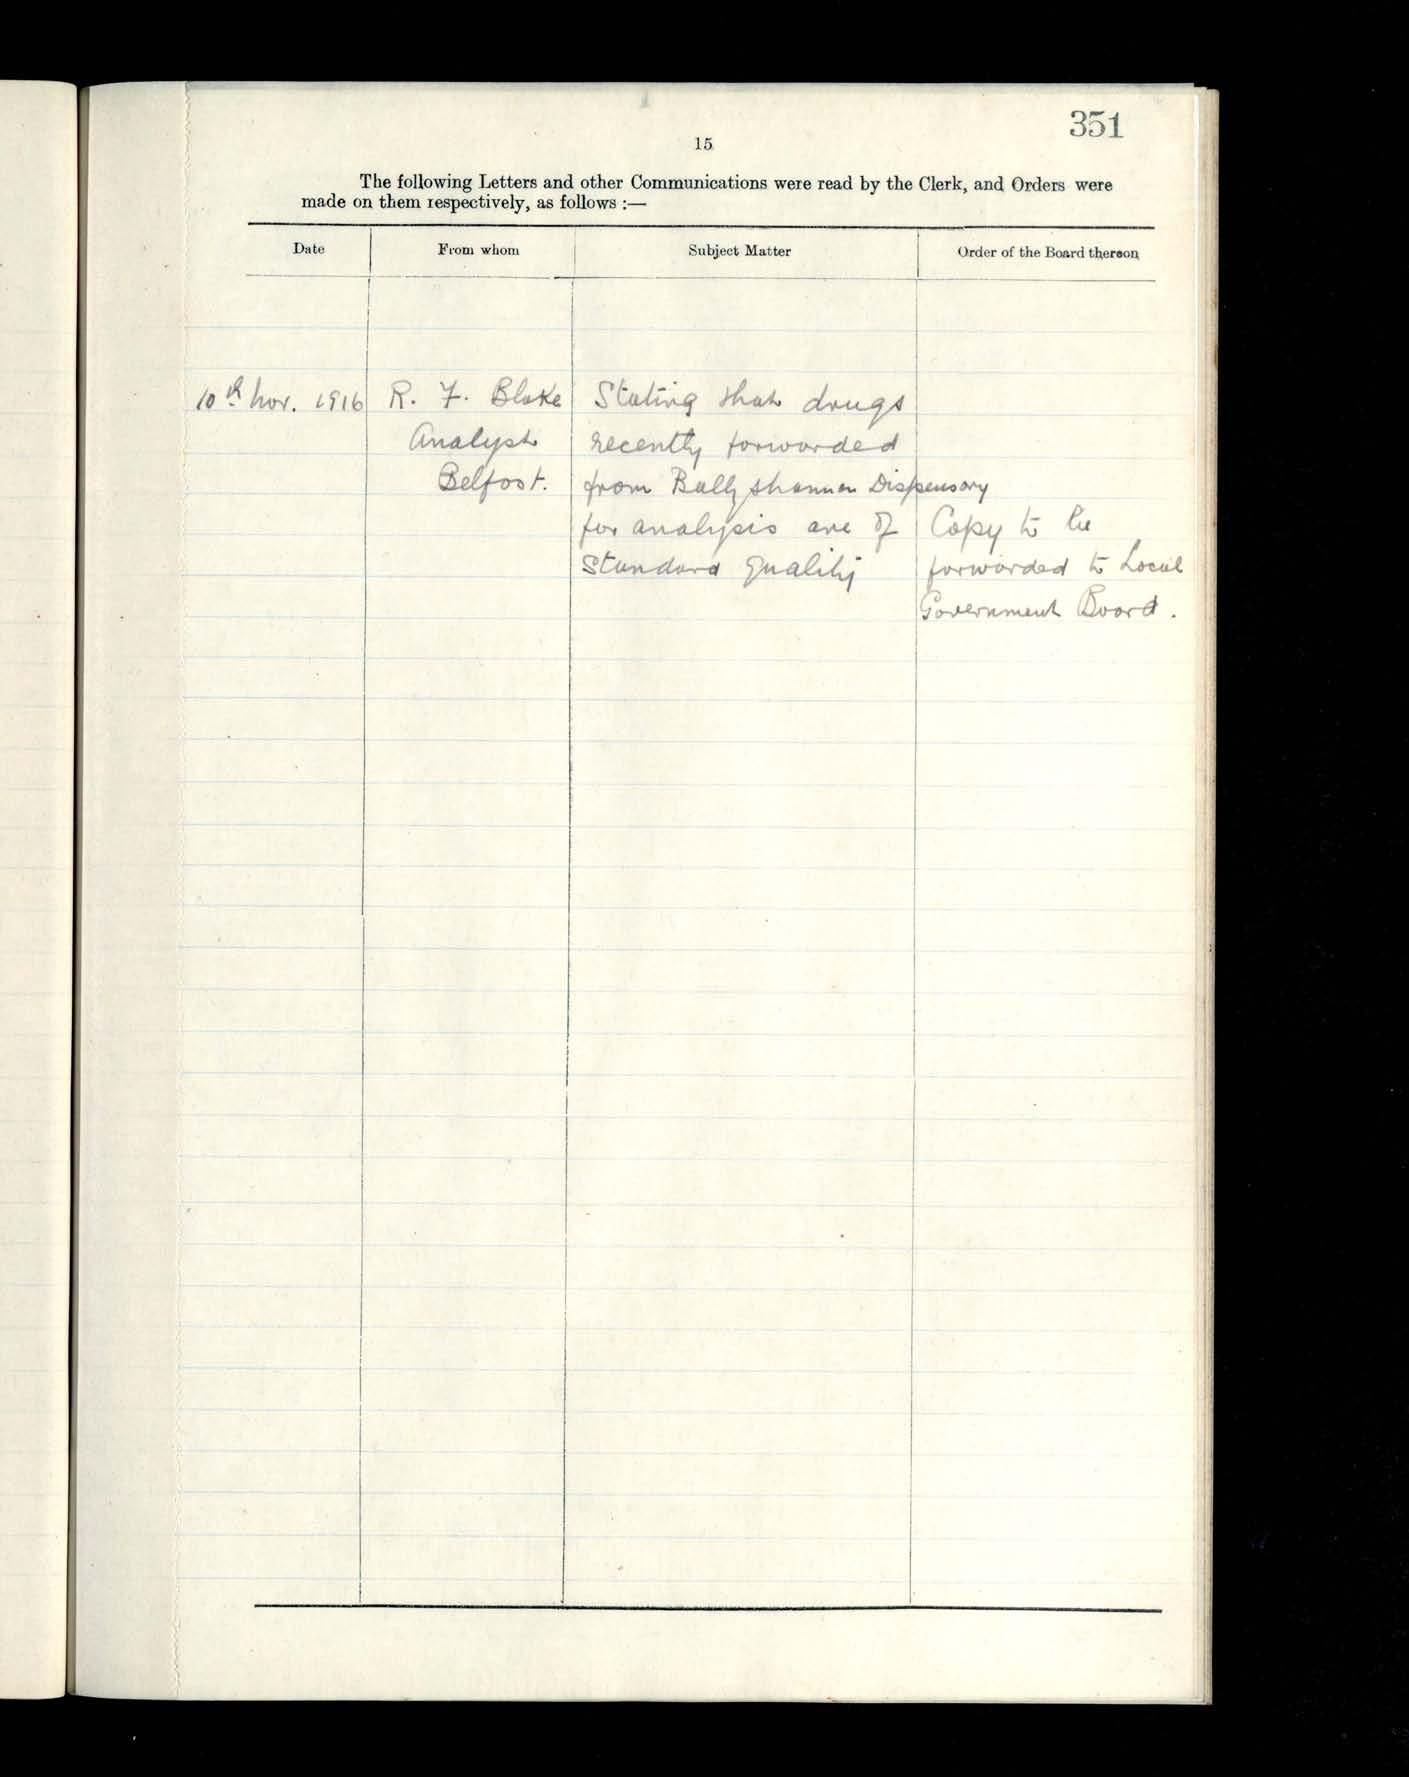 351
15
The following Letters and other Communications were read by the Clerk, and Orders were
made on them respectively, as follows :—
Date From whom Subject Matter Order of the Board thereon
10th Nov. 1916 R. F. Blake Stating that drugs
Analyst recently forwarded
Belfast. from Ballyshannon Dispensary
for analysis are of Copy to be
Standard quality forwarded to Local
Government Board.